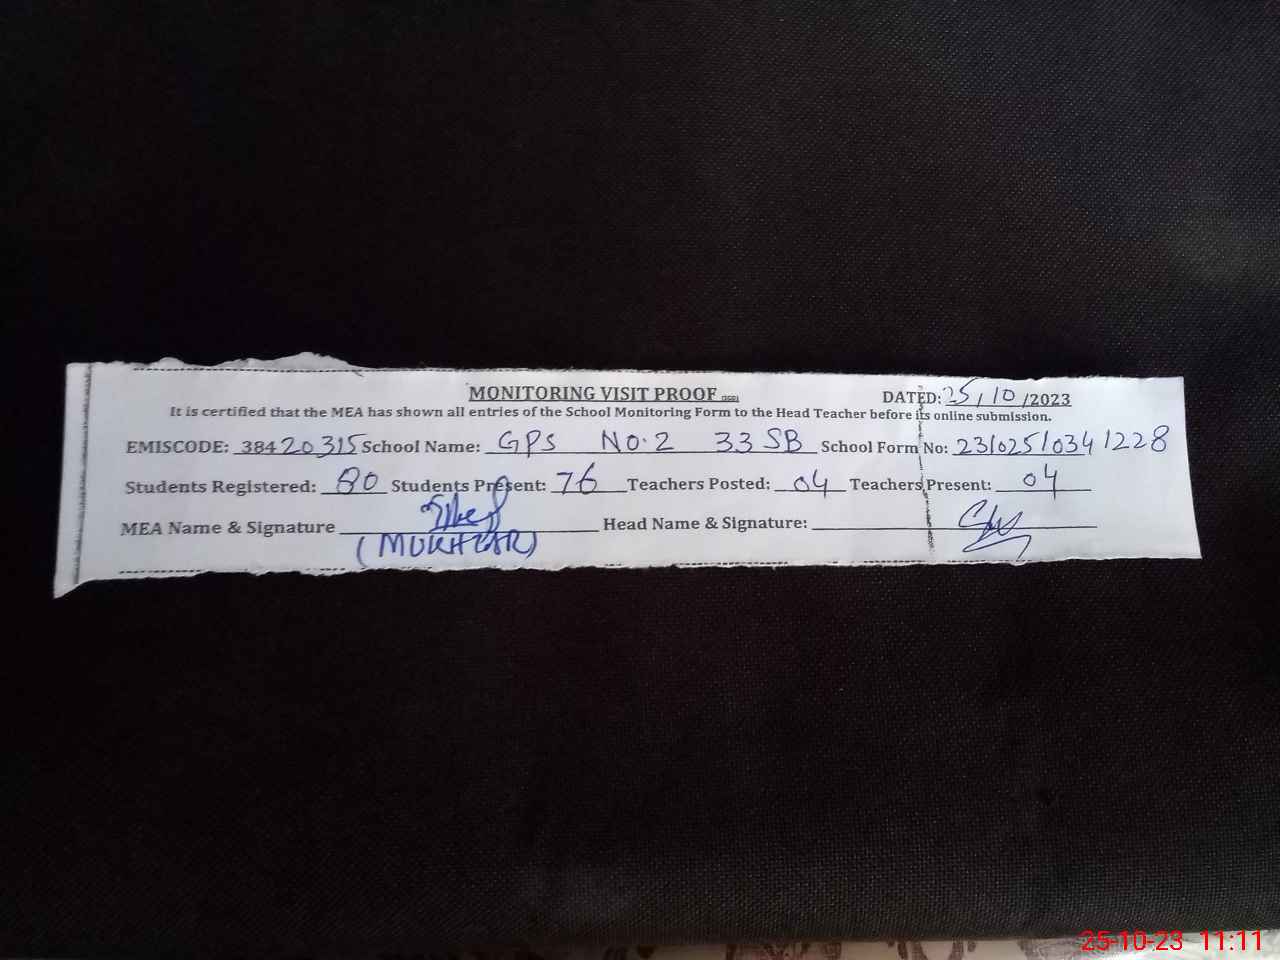 MONITORING VISIT PROOF
DATED: 25/10/2023
It is certified that the MEA has shown all entries of the School Monitoring Form to the Head Teacher before its online submission.
EMISCODE: 38420315 School Name: GPS NO.2 33 SB School Form No: 2310251034 1228
Students Registered: 80 Students Present: 76 Teachers Posted: 04 Teachers Present: 04
MEA Name & Signature Head Name & Signature:
(MUKHTAR)
25-10-23 11:11